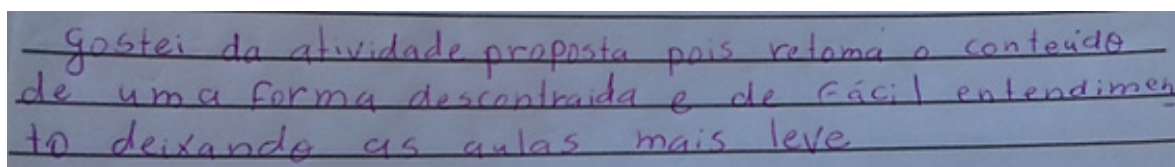 gostei da atividade proposta pois retoma o conteúdo
de uma forma descontraida e de fácil entendimen
to deixando as aulas mais leve